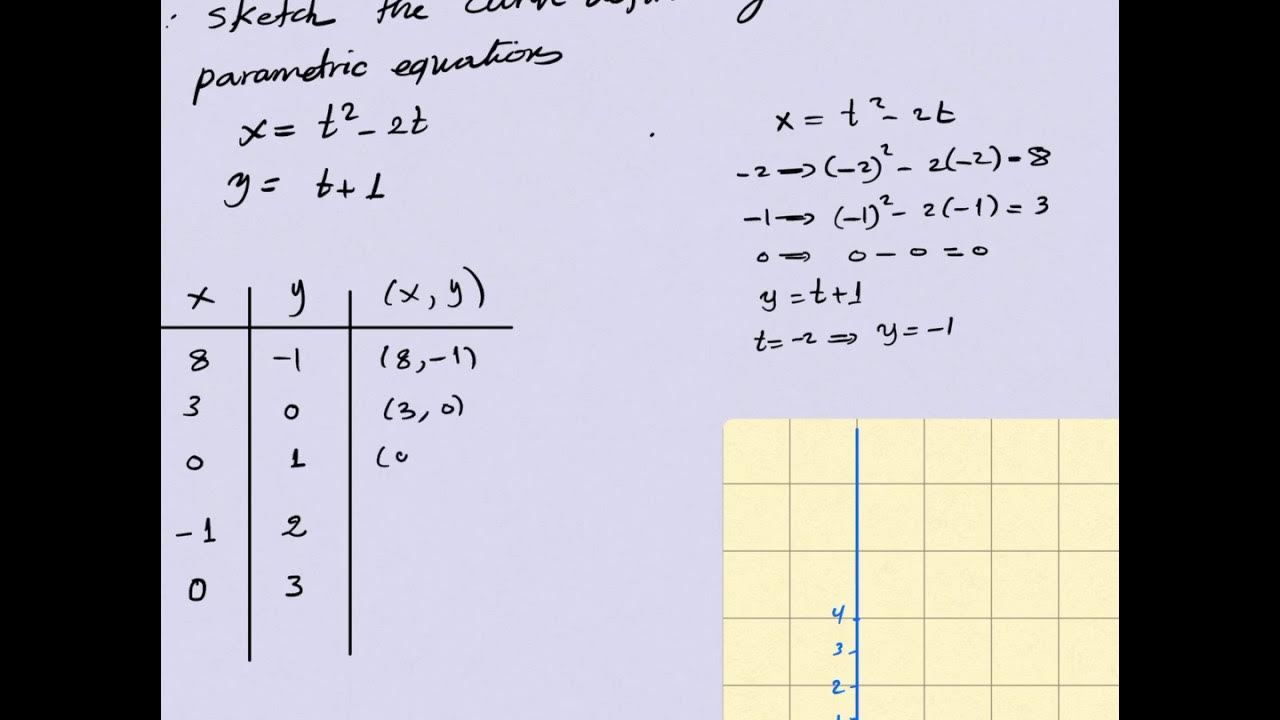 : sketch the
parametric equations
x = t² - 2t
y = t + 1
x y (x, y)
8 -1 (8, -1)
3 0 (3, 0)
0 1 (0
-1 2
0 3
x = t² - 2t
-2 → (-2)² - 2(-2) = 8
-1 → (-1)² - 2(-1) = 3
0 ⇒ 0 - 0 = 0
y = t + 1
t = -2 ⇒ y = -1
4
3
2